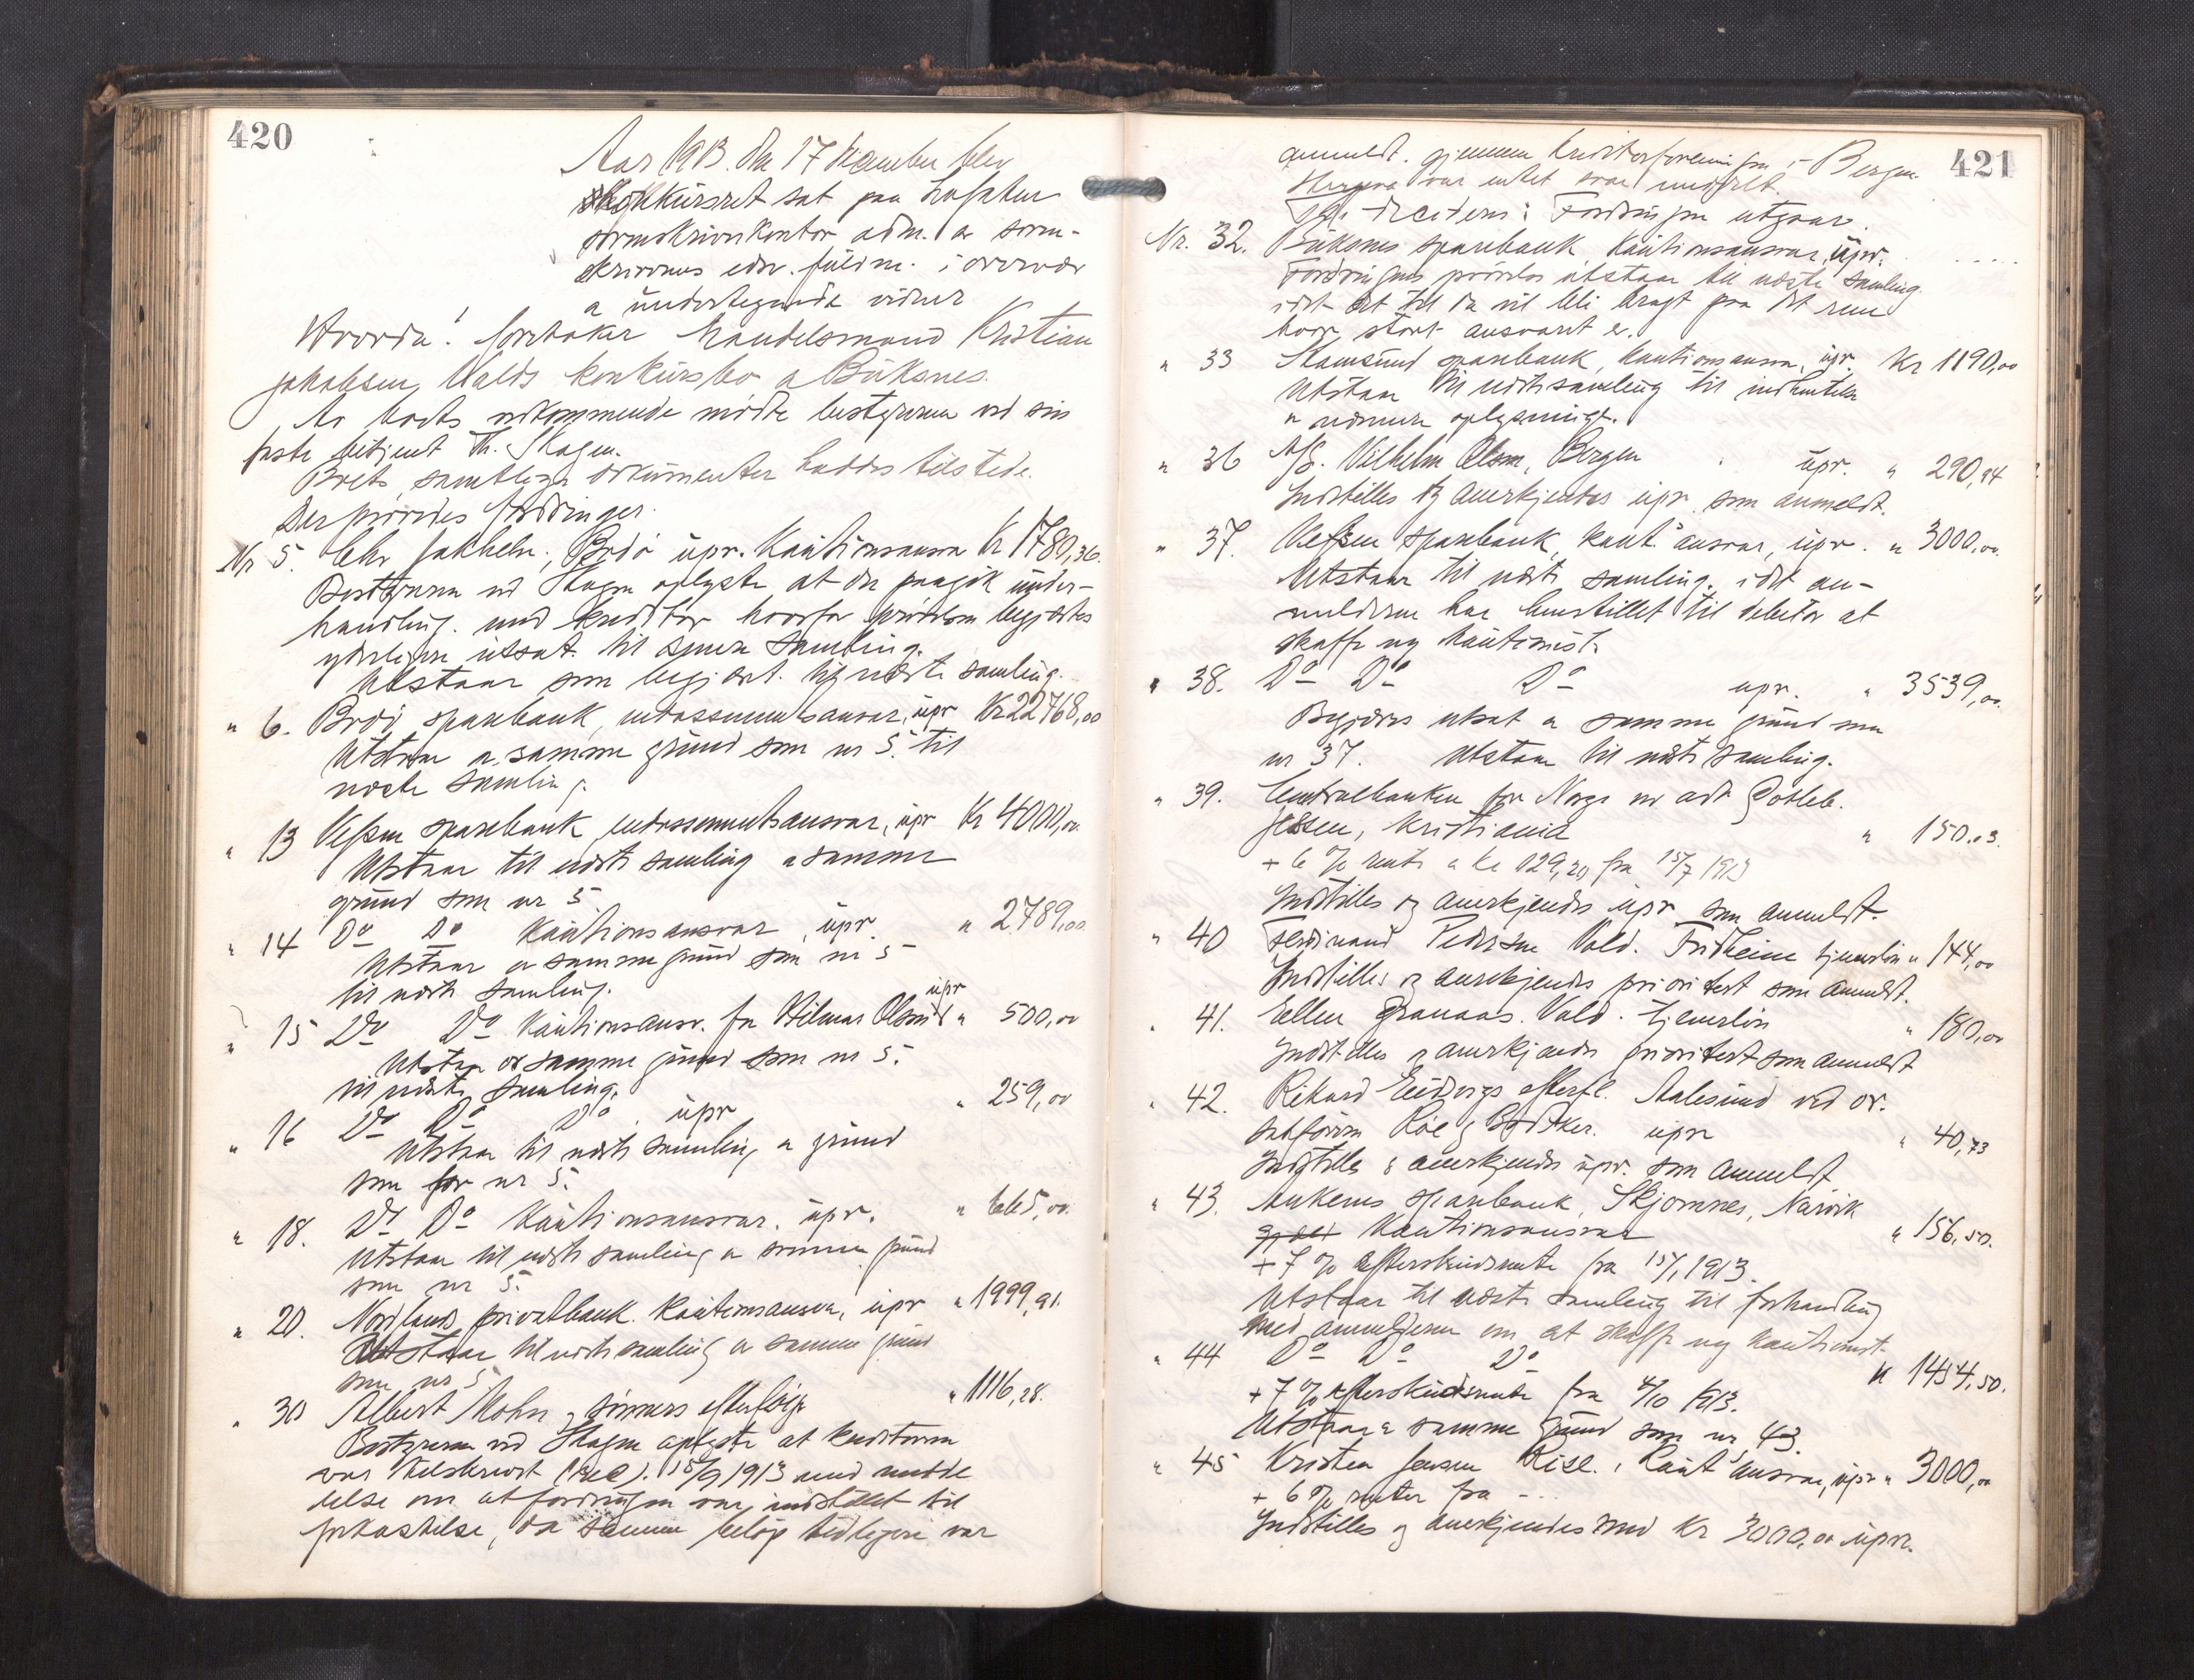 420
Aar 1913 den 17 december blev
skifkursret sat paa Lofoten
sorenskriverkontor adm. av soren-
skriverens edsv. fuldm. i overvær
av undertegnede vidner
Hvorda: foretokes handelsmand Kristian
Jakobsen, Valds konkursbo a Buksnes.
Av boets vedkommende mødte bestyreren ved sin
faste betjent Th. Skagen.
Boets samtlige dokumenter haddes tilstede.
Der prøvedes fordringer.
Nr 5. Chr Jakhelln, Bodø upr. Kautionsansvar Kr 1780,36.
Bestyreren ved Skagen oplyste at der paagik under-
handling med kreditor hvorfor prøvelsen begjærtes
yderligere utsat til senere samling.
Utstaar som begjært til næste samling.
" 6. Bodø sparebank, endossementsansvar, upr Kr 22768,00
Utstaar av samme grund som nr 5. til
næste samling.
" 13 Vefsen sparebank endossementsansvar, upr Kr 4000,00
Utstaar til næste samling av samme
grund som nr 5
" 14 Do Do Kautionsansvar, upr. " 2789,00
Utstaar av samme grund som nr 5
til næste samling.
" 15 Do Do Kautionsansv. for Hilmar Olsen upr " 500,00
Utstaar av samme grund som nr 5.
til næste samling.
" 16 Do Do Do. upr " 259,00
Utstaar til næste samling av grund
som for nr 5.
" 18. Do Do Kautionsansvar. upr. " 665,00.
Utstaar til næste samling av samme grund
som nr 5.
" 20. Nordlands privatbank. Kautionsansvar, upr " 1999,91.
Utstaar til næste samling av samme grund
som nr 5
" 30 Albert Mohn & sønners efterfølger " 1116,28.
Bestyreren ved Skagen oplyste at kreditoren
var tilskrevet (rec). 15/9 1913 med medde
lelse om at fordringen var indstillet til
forkastelse, da samme beløp tidligere var
421
anmeldt gjennem kreditorforeningen i Bergen.
Herpaa var intet svar meddelt.
Fordringen utgaar.
Nr. 32. Buksnes sparebank, Kautionsansvar, upr. .....
Fordringens prøvelse utstaar til næste samling
idet det til da vil bli bragt paa det rene
hvor stort ansvaret er.
" 33 Stamsund sparebank, kautionsansvar, upr. Kr 1190,00
Utstaar til næste samling til indhentelse
av nærmere oplysninger.
" 36 A/S. Vilhelm Olsen, Bergen upr. " 290,94
Indstilles og anerkjendes upr. som anmeldt.
" 37. Vefsen sparebank, kaut. ansvar, upr. " 3000,00.
Utstaar til næste samling. idet an-
melderen har henstillet til debitor at
skaffe ny kautionist.
" 38. Do Do Do upr. " 3539,00.
Begjæres utsat av samme grund som
nr 37. Utstaar til næste samling.
" 39. Centralbanken for Norge ved adv Gotleb.
Jessen, Kristiania " 150.03.
+ 6 % rente av kr 129,20 fra 15/7 1913
Indstilles og anerkjendes upr som anmeldt.
" 40 Ferdinand Pedersen Vold. Fridheim tjenerløn " 144,00
Indstilles og anerkjendes prioritert som anmeldt.
" 41. Ellen Granaas. Vald. tjenerløn " 180,00
Indstilles og anerkjendes prioritert som anmeldt
" 42. Rikard Eidsvigs efterfl. Aalesund ved or.
sakfører Roe & Bødtker. upr " 40,73
Indstilles & anerkjendes upr. som anmeldt
" 43. Ankenes sparebank, Skjomnes, Narvik
Kautionsansvar " 156,50.
+ 7 % efterskudsrente fra 15/1 1913.
Utstaar til næste samling til forhandling
med anmelderen om at skaffe ny kautionist.
" 44 Do Do Do " 1454,50.
+ 7 % efterskudsrente fra 4/10 1913.
Utstaar av samme grund som nr 43.
" 45 Kristen Jensen Rise. Kaut ansvar, upr " 3000,00
+ 6 % renter fra -..
Indstilles og anerkjendes med Kr 3000,00 upr.